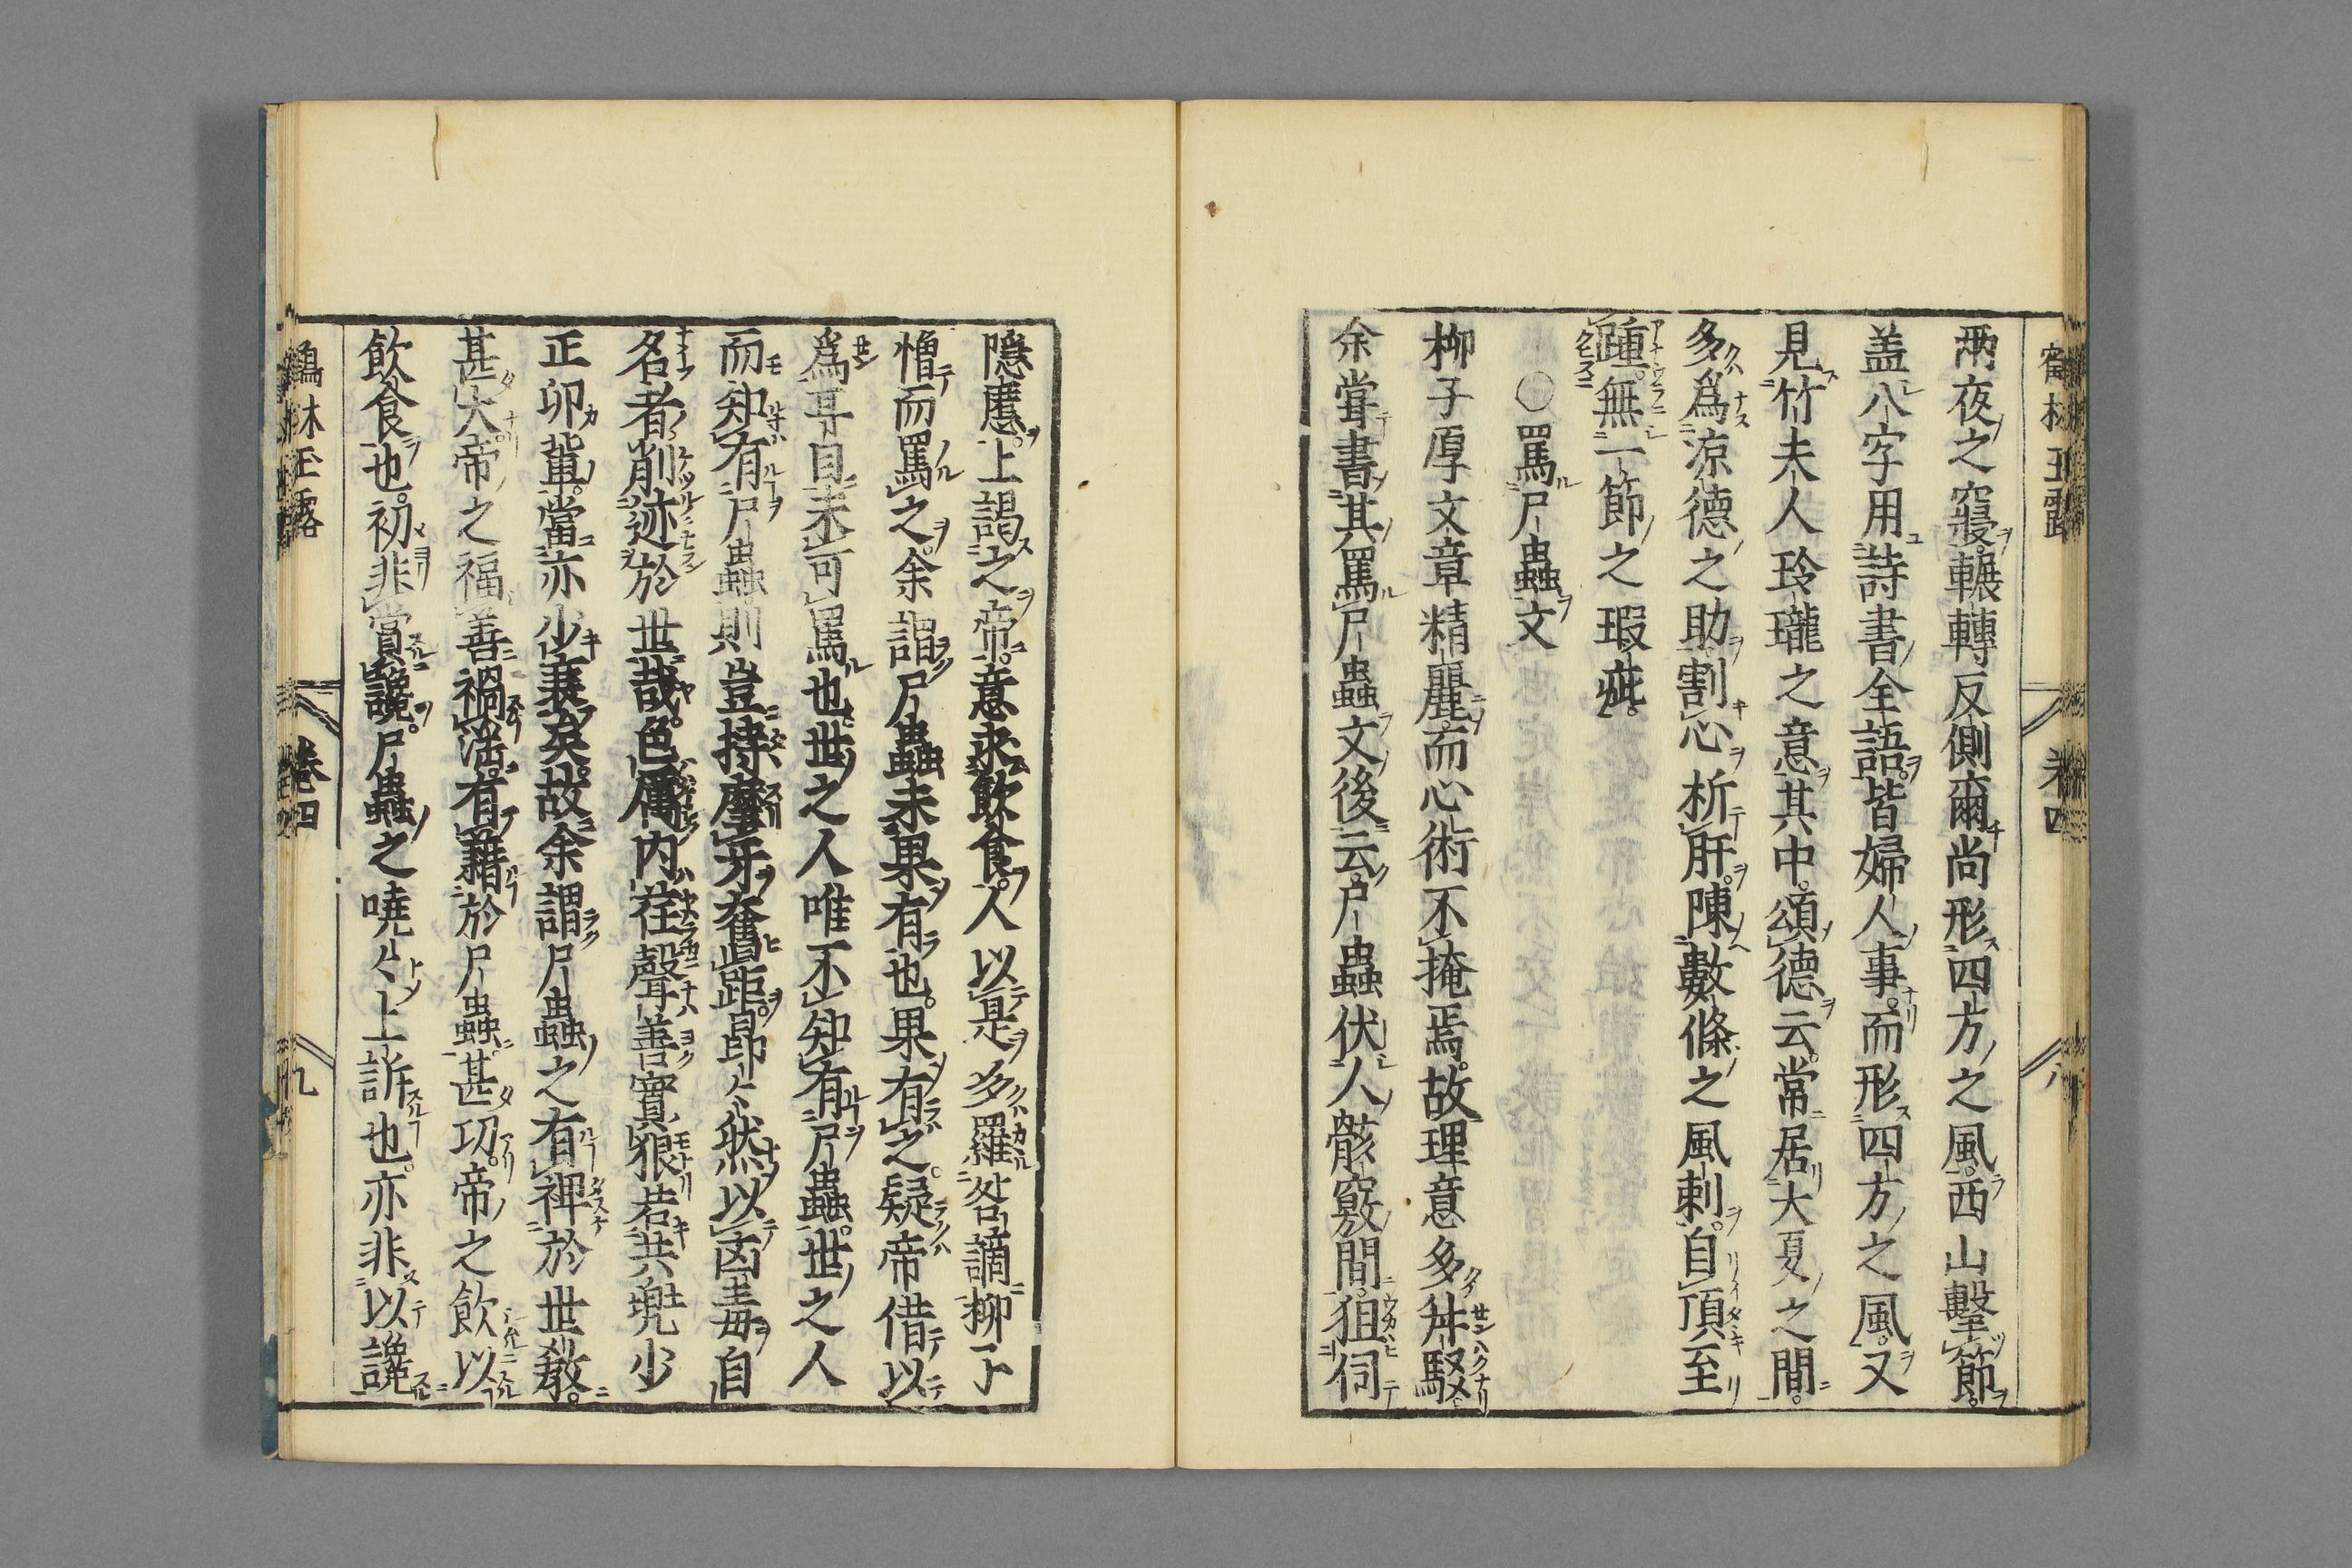 兩夜之寢輾轉反側爾尚形四方之風西山擊節
盖八字用詩書全語皆婦人事而形四方之風又
見竹夫人玲瓏之意其中頌德云常居大夏之間
多爲涼德之助割心析肝陳數條之風刺自頂至
踵無一節之瑕疵
○罵尸蟲文
柳子厚文章精麗而心術不掩焉故理意多舛駁
余嘗書其罵尸蟲文後云尸蟲伏人骸竅間狙伺
隱慝上謁之帝意求飲食人以是多罹咎謫柳子
憎而罵之余謂尸蟲未果有也果有之疑帝借以
爲耳目未可罵也世之人唯不知有尸蟲世之人
而知有尸蟲則豈待摩牙奮距昂々然以凶毒自
名者削迹於世哉色厲内荏聲善實狠若共兜少
正卯輩當亦少衰矣故余謂尸蟲之有裨於世教
甚大帝之福善禍滛有藉於尸蟲甚切帝之飲以
飲食也初非賞讒尸蟲之嘵々上訴也亦非以讒
鶴林玉露
卷四
八
鶴林玉露
卷四
九